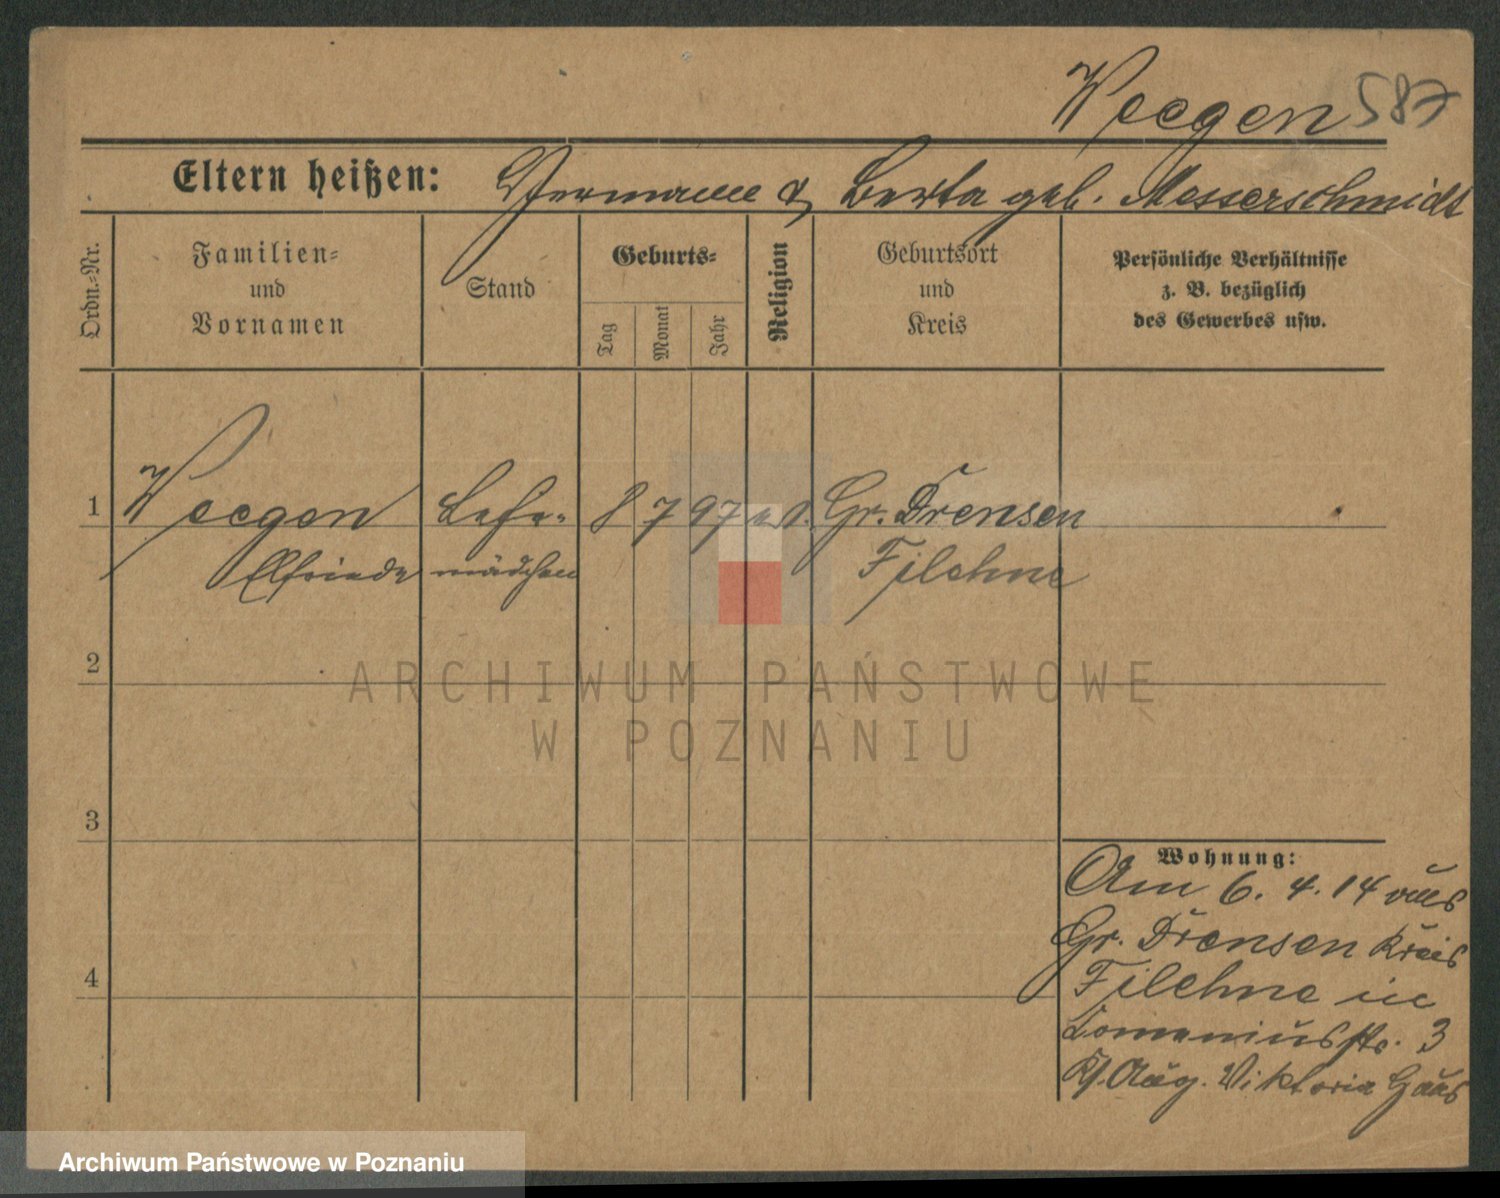 Weegen 587
Eltern heißen: Hermann & Berta geb. Messerschmidt
Ordn.-Nr.
Familien-
und
Vornamen
Stand
Geburts-
Tag
Monat
Jahr
Religion
Geburtsort
und
Kreis
Persönliche Verhältnisse
z. B. bezüglich
des Gewerbes usw.
1 Weegen 8 7 97 Gr. Drensen
Elfriede mädchen Filehne
2
ARCHIWUM PAŃSTWOWE
W POZNANIU
3
Wohnung:
Am 6. 4. 14 aus
Gr. Drensen Kreis
4 Filehne in
Comeniusstr. 3
Aug. Viktoria Haus
Archiwum Państwowe w Poznaniu